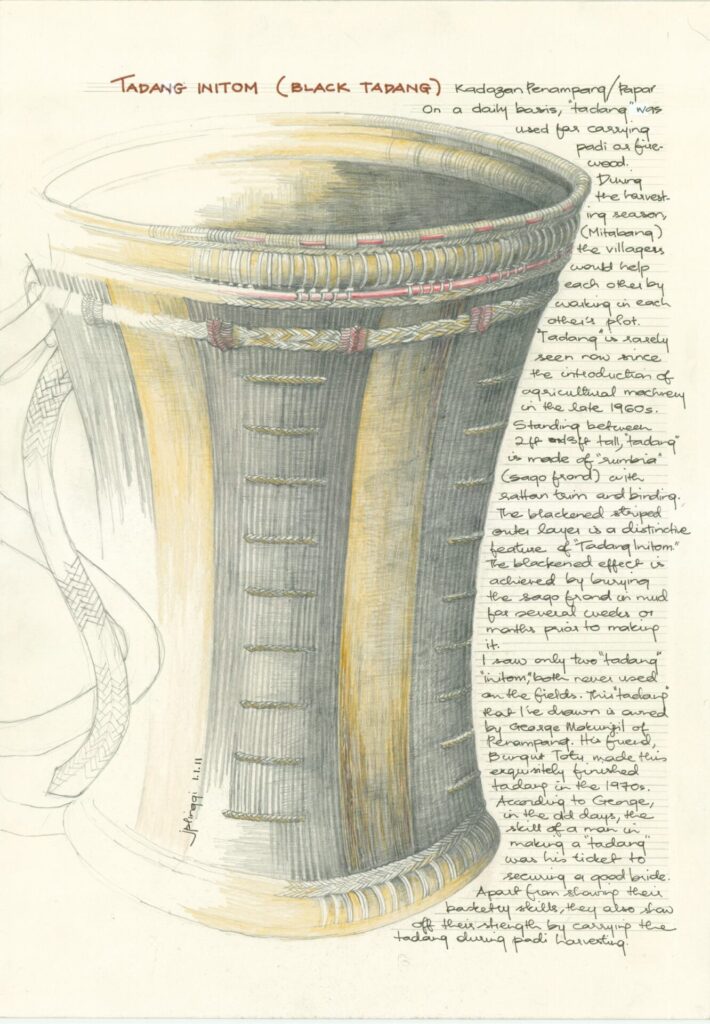 TADANG INITOM (BLACK TADANG) Kadazan Penampang/Papar
On a daily basis, "tadang" was
used for carrying
padi or fire-
wood.
During
the harvest-
ing season,
(Mitabang)
the villagers
would help
each other by
working in each
other's plot.
"Tadang" is rarely
seen now since
the introduction of
agricultural machinery
in the late 1960s.
Standing between
2ft 3ft tall, "tadang"
is made of "rumbia"
(sago frond) with
rattan trim and binding.
The blackened striped
outer layer is a distinctive
feature of "Tadang Initom."
The blackened effect is
achieved by burying
the sago frond in mud
for several weeks or
months prior to making
it.
I saw only two "tadang
initom," both never used
on the fields. This "tadang"
that I've drawn is owned
by George of
Penampang. His friend,
made this
exquisitely finished
tadang in the 1970s.
According to George,
in the old days, the
skill of a man in
making a "tadang"
was his ticket to
securing a good bride.
Apart from showing their
basketry skills, they also show
off their strength by carrying the
tadang during padi harvesting.
jplinggi 1.1.11